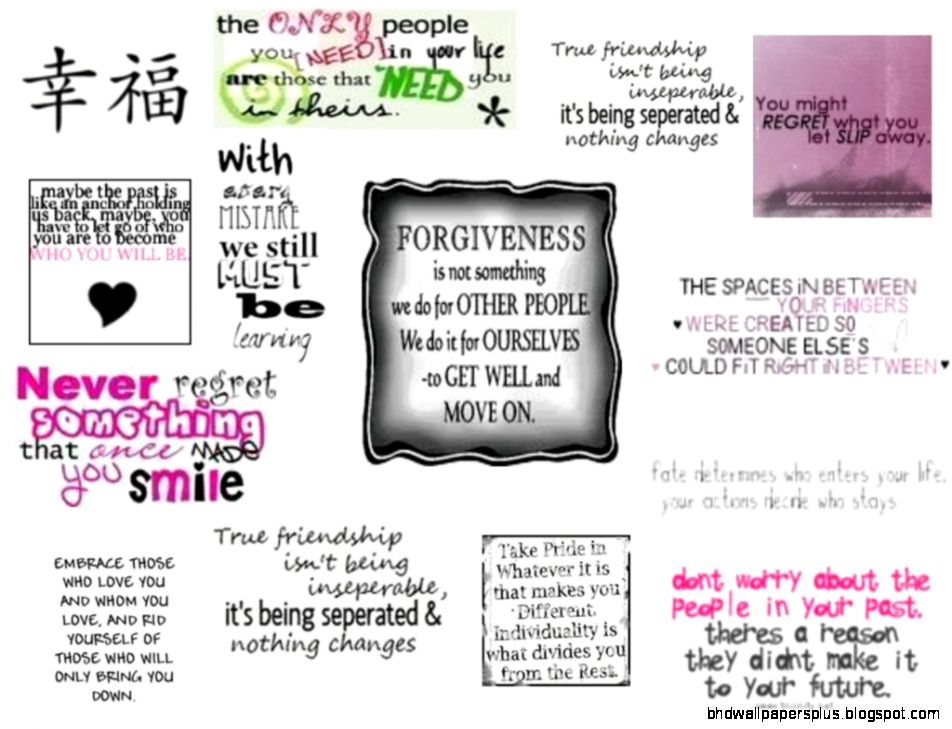 幸福
the ONLY people
you [NEED] in your life
are those that NEED you
in theirs. *
True friendship
isn't being
inseperable,
it's being seperated &
nothing changes
You might
REGRET what you
let SLIP away.
maybe the past is
like an anchor holding
us back. maybe, you
have to let go of who
you are to become
WHO YOU WILL BE.
With
every
MISTAKE
we still
MUST
be
learning
FORGIVENESS
is not something
we do for OTHER PEOPLE.
We do it for OURSELVES
-to GET WELL and
MOVE ON.
THE SPACES iN BETWEEN
YOUR FiNGERS
WERE CREATED SO
SOMEONE ELSE'S
COULD FiT RiGHT iN BETWEEN
Never regret
something
that once MADE
you smile
fate determines who enters your life.
your actions decide who stays
EMBRACE THOSE
WHO LOVE YOU
AND WHOM YOU
LOVE, AND RID
YOURSELF OF
THOSE WHO WILL
ONLY BRING YOU
DOWN.
True friendship
isn't being
inseperable,
it's being seperated &
nothing changes
Take Pride in
Whatever it is
that makes you
Different.
Individuality is
what divides you
from the Rest.
dont worry about the
people in your past.
theres a reason
they didnt make it
to your future.
bhdwallpapersplus.blogspot.com